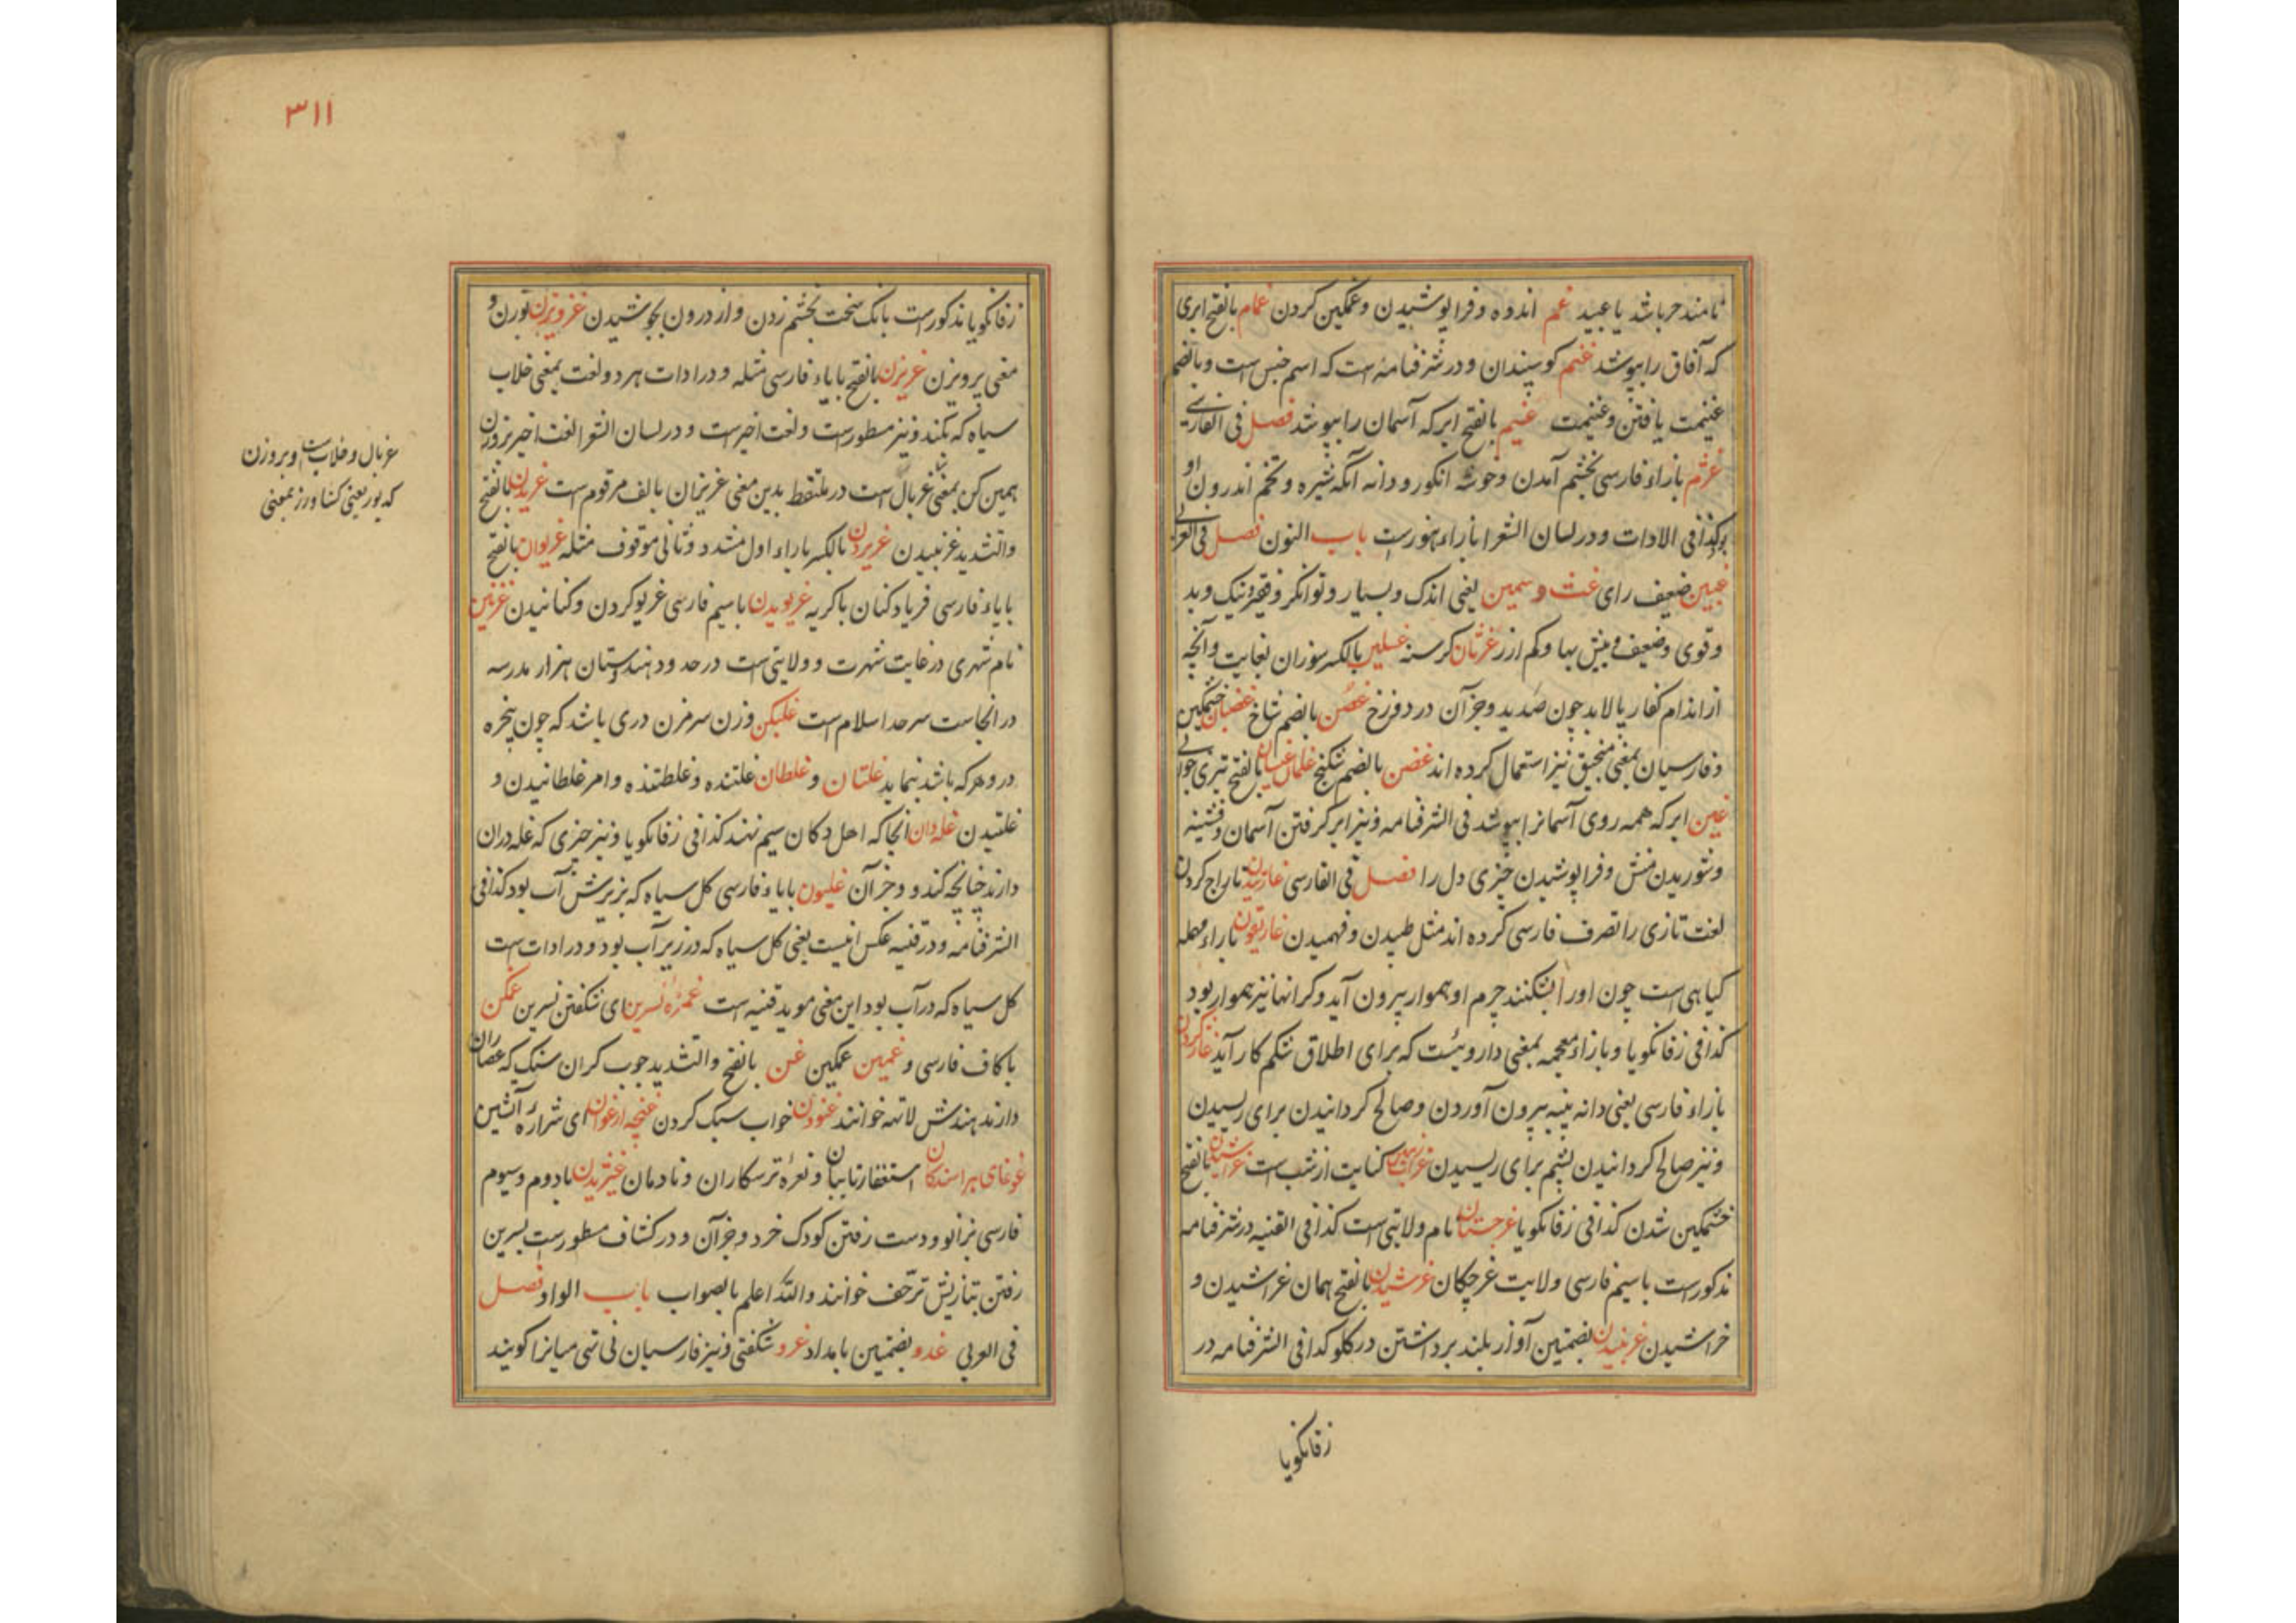 نامند حر باشد یا عبید غم اندوه و فرا پوشیدن و غمکین کردن غمام بالفتح ابری
که آفاق را بپوشد غنم کوسپندان و در شرفنامه است که اسم جنس است و بالضم
غنیمت یافتن و غنیمت غیم بالفتح ابر که آسمان را بپوشد فصل فی الفارسے
غژم با زاء فارسی بخشم آمدن و خوشه انکور و دانه آنکه شیره و تخم اندرون او
بود کذا فی الادات و در لسان الشعرا با راء هنورست باب النون فصل فی العربی
غبین ضعیف رای غث و سمین یعنی اندک و بسیار و توانکر و فقیر و نیک و بد
و قوی و ضعیف و بیش بها و کم ارز غرثان کرسنه غسلین بالکسر سوزان بغایت و آنچه
از اندام کفار پالاید چون صدید و جز آن در دوزخ غصن بالضم شاخ غضبان خشمکین
و فارسیان بمعنی منجنیق نیز استعمال کرده اند غضن بالضم شکنج غلمان غیسان بالفتح تیزی جوانی
غین ابر که همه روی آسمانرا بپوشد فی الشرفنامه و نیز ابر کرفتن آسمان و تشنیه
و شوریدن منش و فرا پوشیدن چیزی دل را فصل فی الفارسی غارتیدن تاراج کردن
لغت تازی را تصرف فارسی کرده اند مثل طپیدن و فهمیدن غاریقون با راء مهمله
کیاهی است چون اورا بشکنند جرم او هموار بیرون آید و کرانها نیز هموار بود
کذا فی زفانکویا و با زاء معجمه بمعنی داروئیست که برای اطلاق شکم کار آید غاز کردن
با زاء فارسی یعنی دانه پنبه بیرون آوردن و صالح کردانیدن برای ریسیدن
و نیز صالح کردانیدن پشم برای ریسیدن غراب زمین کنایت از شب است غراشیدن بالفتح
خشمکین شدن کذا فی زفانکویا غرجستان نام ولایتی است کذا فی القنیه در شرفنامه
مذکور است با سیم فارسی ولایت غرچکان غرشیدن بالفتح همان غراشیدن و
خراشیدن غرنبیدن بضمتین آواز بلند برداشتن در کلو کذا فی الشرفنامه در
زفانکویا
۳۱۱
زفانکویا مذکور است بانک سخت بخشم زدن و از درون بجوشیدن غرویزن بوزن و
معنی پرویزن غریزن بالفتح با یاء فارسی مثله و در ادات هر دو لغت بمعنی خلاب
سیاه که بکند و نیز مسطورست و لغت اخیرست و در لسان الشعرا لغت اخیر بر وزن
همین کن بمعنی غربال است در ملتقط بدین معنی غریزان بالف مرقوم است غریدن بالفتح
والتشدید غرنبیدن غریردن بالکسر با راء اول مشدد و ثانی موقوف مثله غریوان بالفتح
با یاء فارسی فریاد کنان با کریه غریویدن با سیم فارسی غریو کردن و کنانیدن غزنین
نام شهری در غایت شهرت و ولایتی است در حدود هندوستان هزار مدرسه
در آنجاست سرحد اسلام است غلبکن وزن سرمزن دری باشد که چون پنجره
در و هر که باشد بنماید غلتان و غلطان غلتنده و غلطنده و امر غلطانیدن و
غلتیدن غله دان آنجا که اهل دکان سیم نهند کذا فی زفانکویا و نیز چیزی که غله دران
دارند چنانچه کندو و جز آن غلیون با یاء فارسی کل سیاه که بزیرش آب بود کذا فی
الشرفنامه و در قنیه عکس اینست یعنی کل سیاه که در زیر آب بود و در ادات است
کل سیاه که در آب بود این معنی موید قنیه است غمزهٔ نسرین ای شکفتن نسرین غمکن
با کاف فارسی و غمین غمکین غن بالفتح والتشدید چوب کران سنک که عصاران
دارند هندش لاته خوانند غنودن خواب سبک کردن غنچه ارغوان ای شرارهٔ آتشین
غوغای هراسندکان استغفار تاییان و نعرهٔ ترسکاران و نادمان غیژیدن با دوم و سیوم
فارسی بزانو و دست رفتن کودک خرد و جز آن و در کشاف مسطورست بسرین
رفتن بتازیش تزحف خوانند والله اعلم بالصواب باب الواو فصل
فی العربی غدو بضمتین بامداد غرو شکفتی و نیز فارسیان نی تی میانرا کویند
غربال و خلاب است و بر وزن
که یور یعنی کشاورز بمعنی